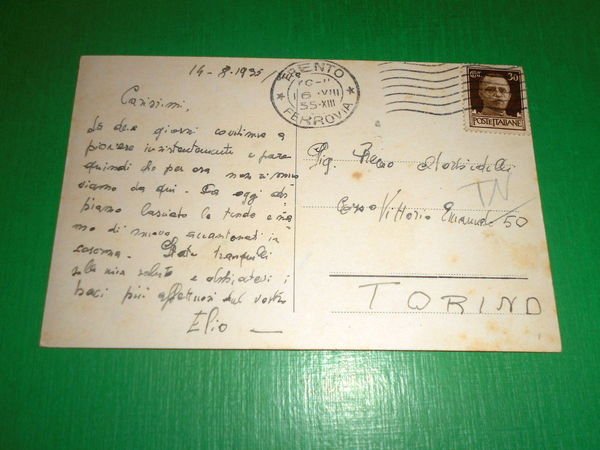 14-8-1935
Carissimi,
da due giorni continua a
piovere insistentemente e pare
quindi che per ora non ci muo
viamo da qui. Da oggi ab
biamo lasciato le tende e sia
mo di nuovo accantonati in
caserma. State tranquilli
sulla mia salute e abbiatevi i
baci più affettuosi dal vostro
Elio
TRENTO
FERROVIA
VIII
35-XIII
30
POSTE ITALIANE
Sig.
Corso Vittorio Emanuele 50
TN
TORINO